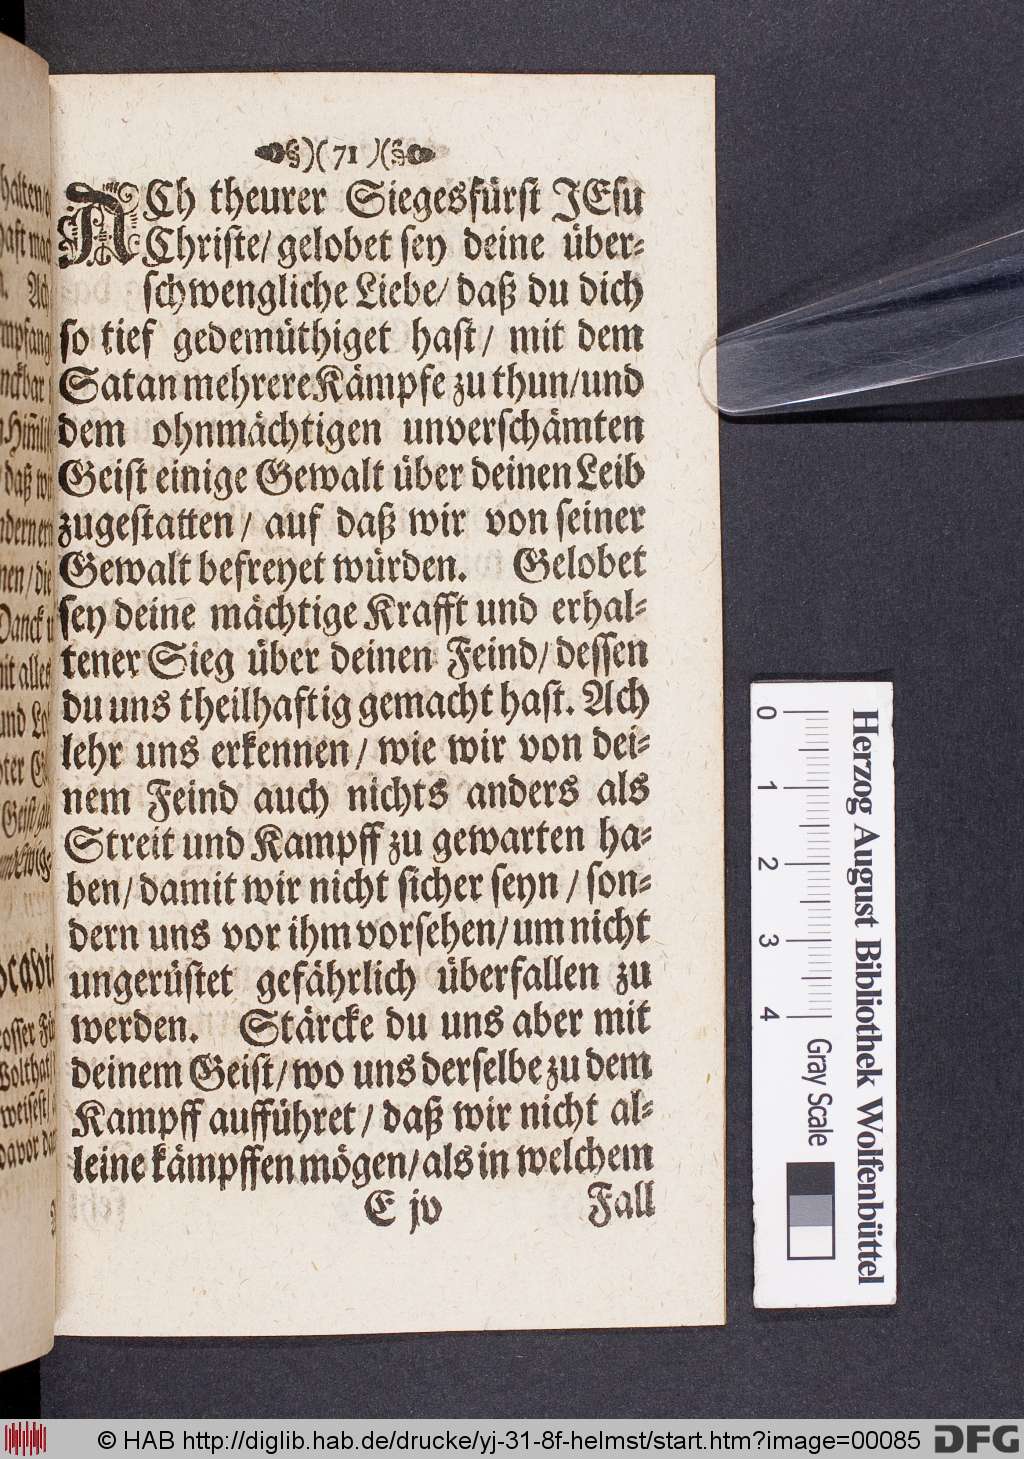 )( 71 )(
ACh theurer Siegesfürst JEsu
Christe/ gelobet sey deine über-
schwengliche Liebe/ daß du dich
so tief gedemüthiget hast/ mit dem
Satan mehrere Kämpfe zu thun/ und
dem ohnmächtigen unverschämten
Geist einige Gewalt über deinen Leib
zugestatten/ auf daß wir von seiner
Gewalt befreyet würden. Gelobet
sey deine mächtige Krafft und erhal-
tener Sieg über deinen Feind/ dessen
du uns theilhaftig gemacht hast. Ach
lehr uns erkennen/ wie wir von dei-
nem Feind auch nichts anders als
Streit und Kampff zu gewarten ha-
ben/ damit wir nicht sicher seyn/ son-
dern uns vor ihm vorsehen/ um nicht
ungerüstet gefährlich überfallen zu
werden. Stärcke du uns aber mit
deinem Geist/ wo uns derselbe zu dem
Kampff aufführet/ daß wir nicht al-
leine kämpffen mögen/ als in welchem
E jv Fall
0 1 2 3 4 Gray Scale
Herzog August Bibliothek Wolfenbüttel
© HAB http://diglib.hab.de/drucke/yj-31-8f-helmst/start.htm?image=00085 DFG